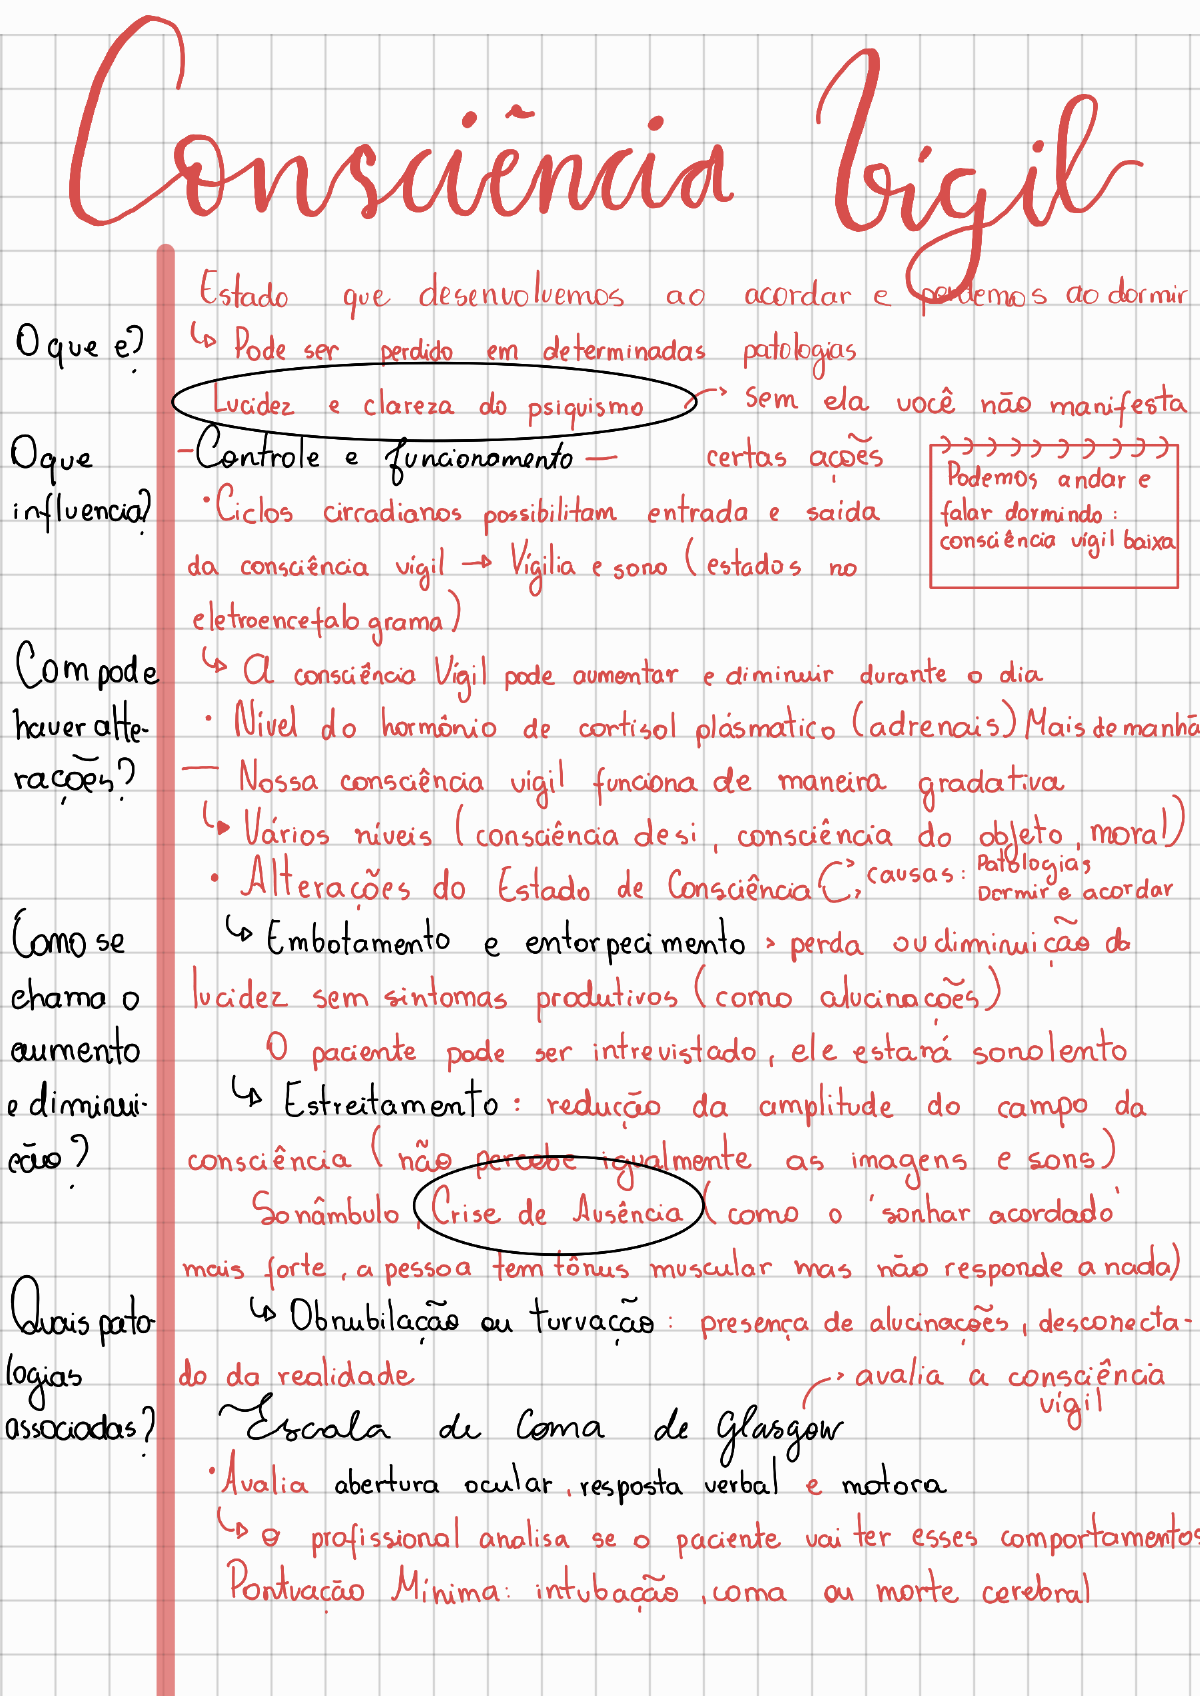 Consciência Vígil
Estado que desenvolvemos ao acordar e perdemos ao dormir
O que e?
↳ Pode ser perdido em determinadas patologias
Lucidez e clareza do psiquismo → Sem ela você não manifesta
certas ações
O que
influencia?
- Controle e funcionamento -
Podemos andar e
falar dormindo:
consciência vígil baixa
• Ciclos circadianos possibilitam entrada e saída
da consciência vígil → Vígilia e sono (estados no
eletroencefalograma)
Com pode
haver alte-
rações?
↳ A consciência Vígil pode aumentar e diminuir durante o dia
• Nível do hormônio de cortisol plásmatico (adrenais) Mais de manhã
— Nossa consciência vigil funciona de maneira gradativa
↳ Vários níveis (consciência de si, consciência do objeto, moral)
• Alterações do Estado de Consciência causas: Patologias
Dormir e acordar
Como se
chama o
aumento
e diminui-
ção?
↳ Embotamento e entorpecimento > perda ou diminuição da
lucidez sem sintomas produtivos (como alucinações)
O paciente pode ser intrevistado, ele estará sonolento
↳ Estreitamento: redução da amplitude do campo da
consciência (não percebe igualmente as imagens e sons)
Sonâmbulo, Crise de Ausência (como o 'sonhar acordado'
mais forte, a pessoa tem tônus muscular mas não responde a nada)
Quais pato-
logias
associadas?
↳ Obnubilação ou turvação: presença de alucinações, desconecta-
do da realidade
→ avalia a consciência
vígil
Escala de Coma de Glasgow
• Avalia abertura ocular, resposta verbal e motora
↳ o profissional analisa se o paciente vai ter esses comportamentos
Pontuação Mínima: intubação, coma ou morte cerebral